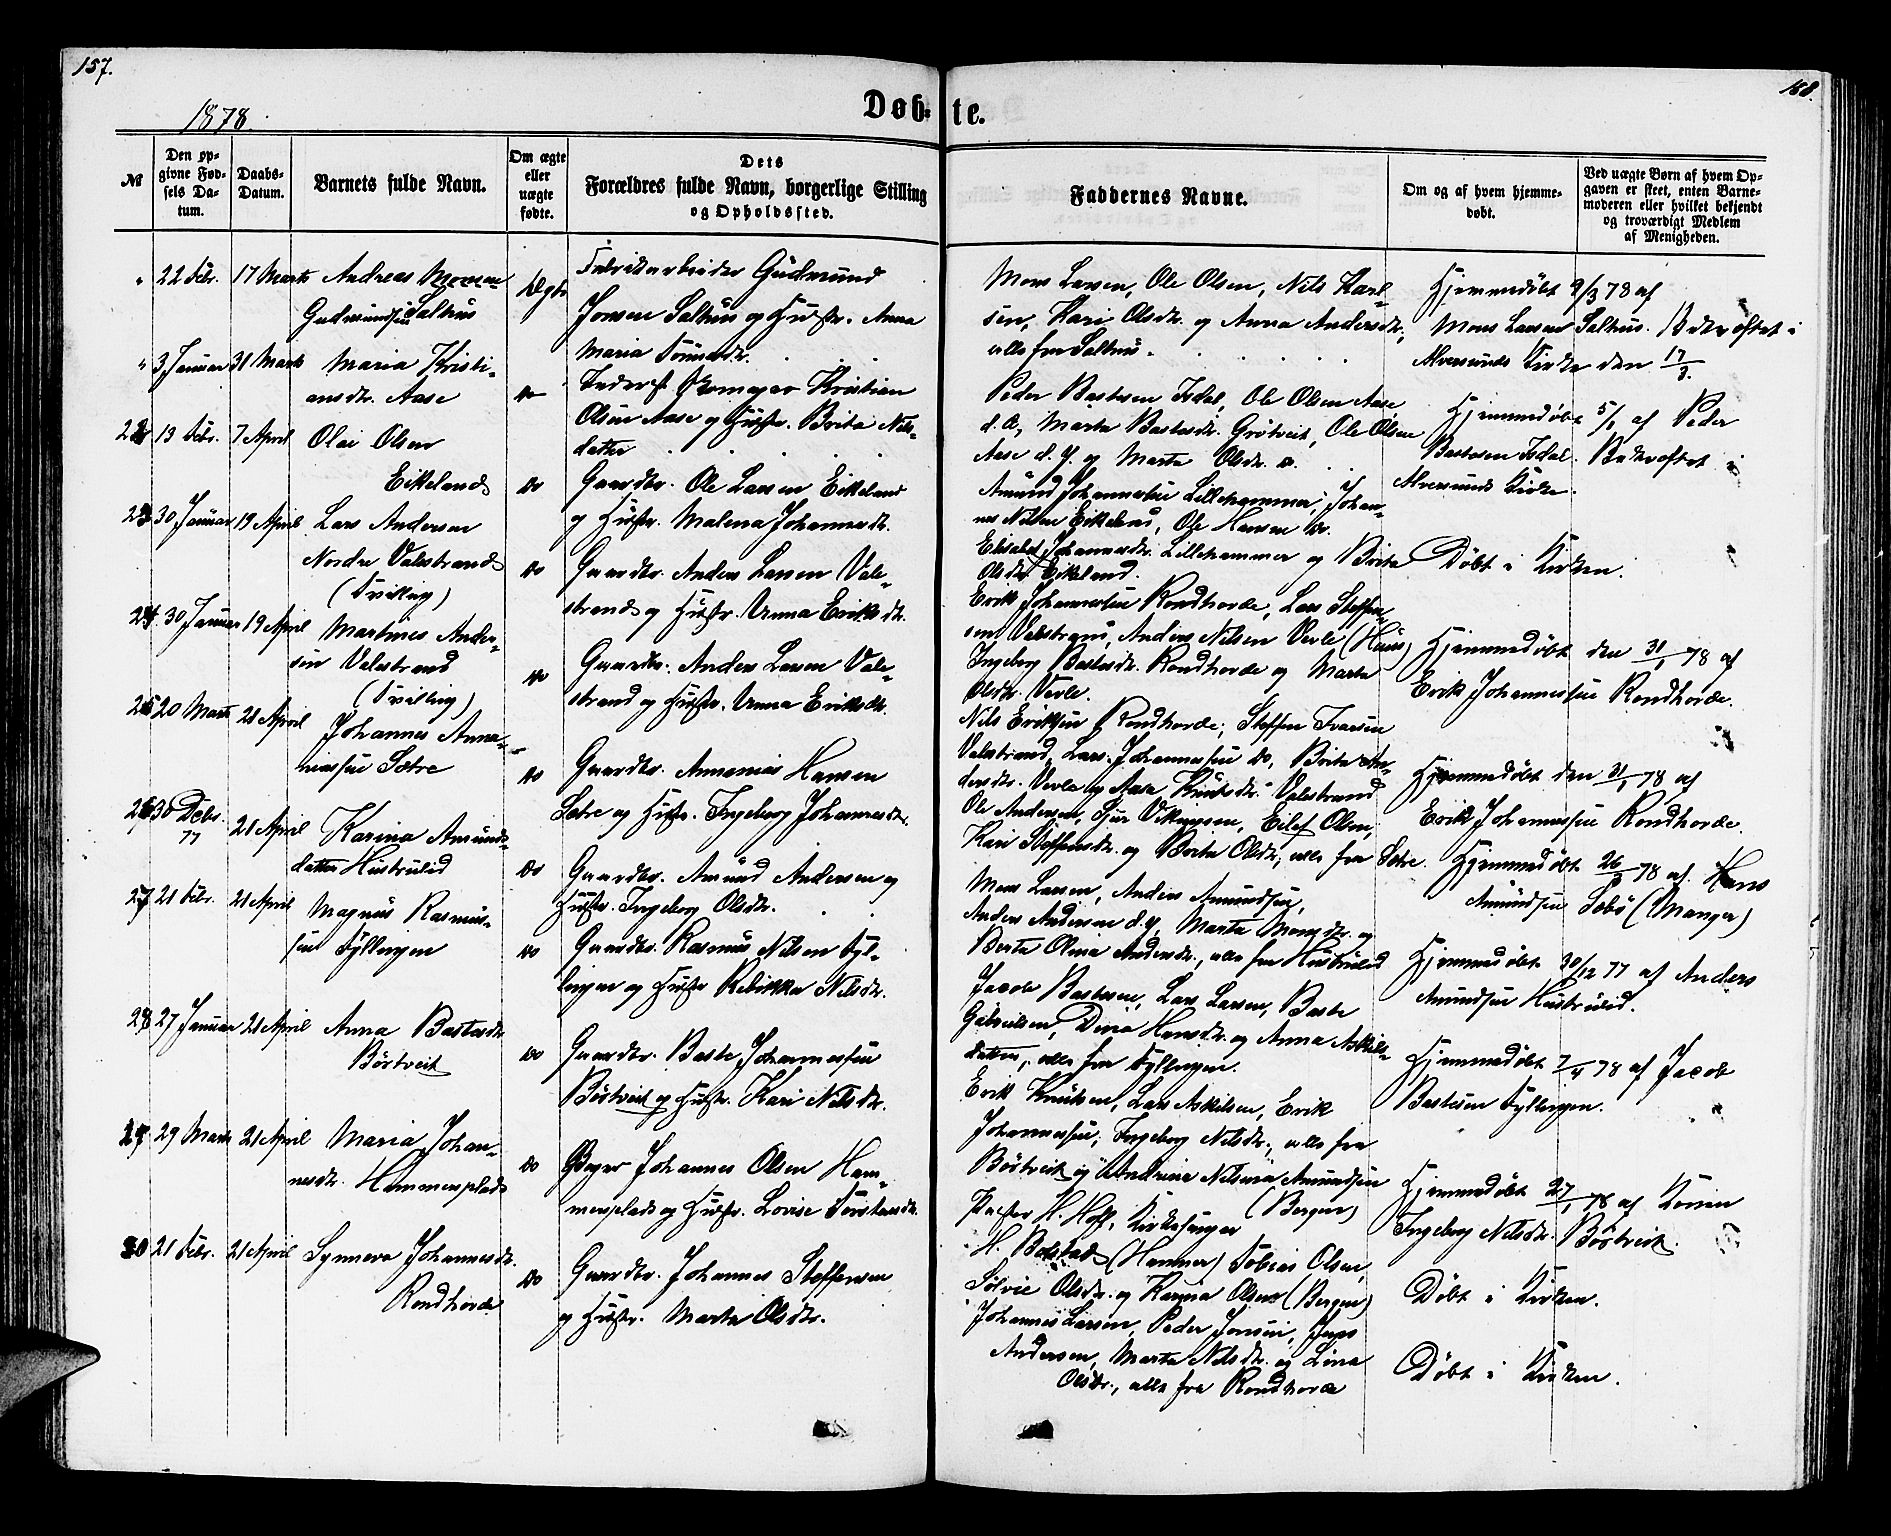 157.
158.
1878.
Døb-
te.
№
Den op-
givne Fød-
sels Da-
tum.
Daabs-
Datum.
Barnets fulde Navn.
Om ægte
eller
uægte
fødte.
Dets
Forældres fulde Navn, borgerlige Stilling
og Opholdssted.
Faddernes Navne.
Om og af hvem hjemme-
døbt.
Ved uægte Børn af hvem Op-
gaven er skeet, enten Barne-
moderen eller hvilket bekjendt
og troværdigt Medlem
af Menigheden.
" 22 Febr. 17 Marts Andreas Monsen
Gudmundsen Salhus
Ægte
Fabrikarbeider Gudmund
Jonsen Salhus og Hustr. Anna
Maria Tomasdtr.
Mons Larsen, Ole Olsen, Nils Karl-
sen, Kari Olsdtr. og Anna Andersdtr.,
alle fra Salhus.
Hjemmedøbt 9/3 78 af
Mons Larsen Salhus. Bekræftet i
Alversunds Kirke den 17/3.
" 3 Januar 31 Marts Maria Kristi-
ansdr. Aase
do
Inderst Skomager Kristian
Olsen Aase og Hustr. Brita Nils-
datter
Peder Bastesen Isdal, Ole Olsen Aase
d. Æ, Marta Bastesdr. Grötveit, Ole Olsen
Aase d. Y. og Marta Olsdr. do.
Hjemmedøbt 5/1 af Peder
Bastesen Isdal. Bekræftet i
Alversunds Kirke.
22 13 Febr. 7 April Olai Olsen
Eikeland
do
Gaardbr. Ole Larsen Eikeland
og Hustr. Malena Johannesdr.
Amund Johannessen Lillehammer, Johan-
nes Nilsen Eikeland, Ole Hansen do.
Elisabet Johannesdr. Lillehammer og Brita
Olsdr. Eikeland.
Døbt i Kirken.
23 30 Januar 19 April Lars Andersen
Nordre Valestrand
(Tvilling)
do
Gaardbr. Anders Larsen Vale-
strand og Hustr. Unna Eriksdr.
Erik Johannessen Rondhovde, Lars Steffen-
sen Valestrand, Anders Nilsen Verle (Huus)
Ingeborg Bastesdr. Rondhovde og Marta
Olsdr. Verle.
Hjemmedøbt den 31/1 78 af
Erik Johannessen Rondhovde.
24. 30 Januar 19 April Martines Ander-
sen Valestrand
(Tvilling)
do
Gaardbr. Anders Larsen Vale-
strand og Hustr. Unna Eriksdr.
Nils Eriksen Rondhovde, Steffen Ivarsen
Valestrand, Lars Johannessen do, Brita An-
dersdr. Verle og Aase Knutsdr. Valestrand
Hjemmedøbt den 31/1 78 af
Erik Johannessen Rondhovde.
25 20 Marts 21 April Johannes Anna-
niassen Sætre
do
Gaardbr. Annanias Hansen
Sætre og Hustr. Ingeborg Johannesdr.
Ole Andersen, Sjur Vikingsen, Eilef Olsen,
Kari Steffensdr. og Brita Olsdr., alle fra Sætre.
Hjemmedøbt 26/3 78 af Hans
Amundsen Sæbø (Manger)
26 30 Decbr.
77 21 April Karina Amunds-
datter Hustrulid
do
Gaardbr. Amund Andersen og
Hustr. Ingeborg Olsdr.
Mons Larsen, Anders Amundsen,
Anders Andersen d. y, Marta Monsdr. og
Berta Olina Andersdr., alle fra Hustrulid
Hjemmedøbt 30/12 77 af Anders
Amundsen Hustrulid.
27 21 Febr. 21 April Magnus Rasmus-
sen Tyllingen
do
Gaardbr. Rasmus Nilsen Tyl-
lingen og Hustr Rebikka Nilsdr.
Jacob Bastesen, Lars Larsen, Baste
Gabrielsen, Dina Hansdr. og Anna Askils-
datter, alle fra Tyllingen.
Hjemmedøbt 7/4 78 af Jacob
Bastesen Tyllingen.
28 27 Januar 21 April Anna Bastesdr.
Börtveit
do
Gaardbr. Baste Johannessen
Börtveit og Hustr. Kari Nilsdr.
Erik Knutsen, Lars Askilsen, Erik
Johannessen, Ingeborg Nilsdr., alle fra
Börtveit og Andrine Nilsina Amundsen
(Bergen)
Hjemmedøbt 27/1 78 af Konen
Ingeborg Nilsdr. Börtveit.
29 29 Marts 21 April Maria Johan-
nesdr. Hammersplads
do
Bager Johannes Olsen Ham-
mersplads og Hustr. Lovise Torstensdr.
Præsten H. Hoff, Kirkesanger
H. Bolstad (Hammer) Tobias Olsen,
Sølvie Olsdr. og Karina Olsen (Bergen)
Døbt i Kirken.
30 21 Febr. 21 April Synneva Johannesdr.
Rondhovde
do
Gaardbr. Johannes Steffensen
og Hustr. Marta Olsdr.
Johannes Larsen, Peder Jonsen, Jens
Andersen, Marta Nilsdr. og Lina
Olsdr., alle fra Rondhovde
Døbt i Kirken.